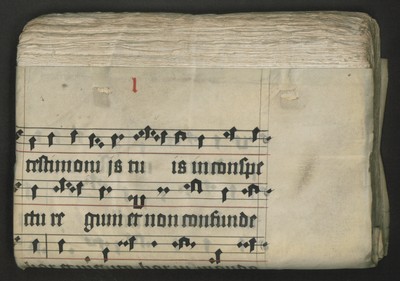 l
testimoni js tu is in conspe
ctu re gum et non confunde